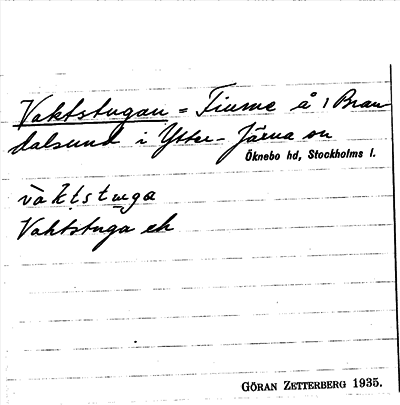 Vaktstugan = Fiume å 1 Bran-
dalsund i Ytter-Järna sn
Öknebo hd, Stockholms l.
vàkt̩stu̲ga
Vaktstuga ek
GÖRAN ZETTERBERG 1935.